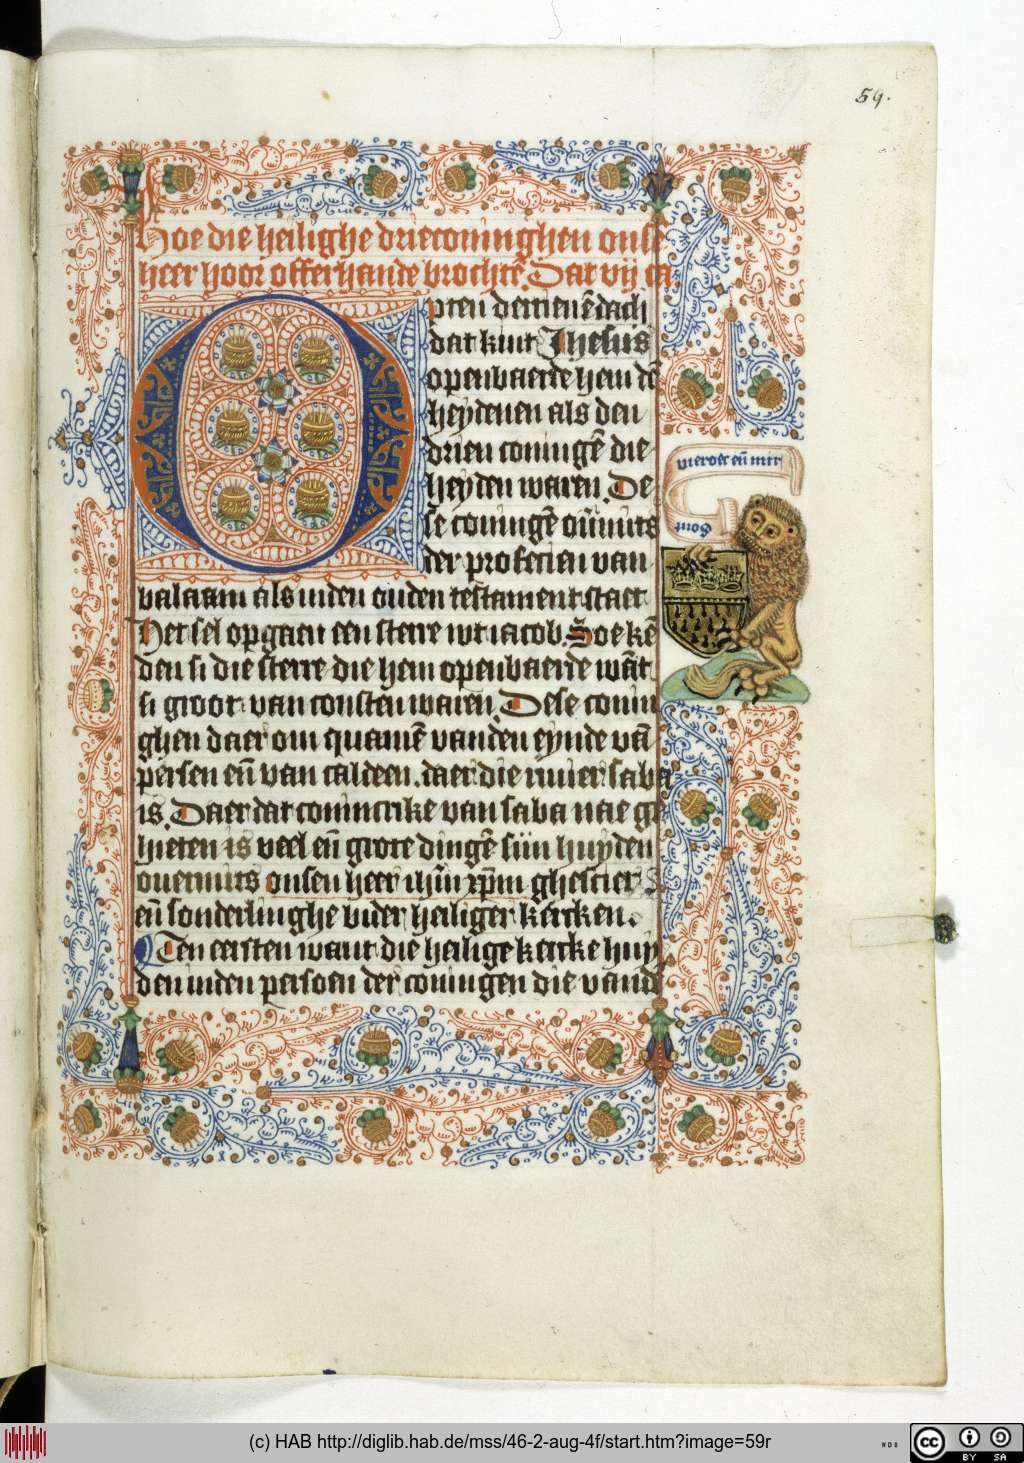 59.
Hoe die heilighe drieconinghen onse
heer hoor offerhande brochtē. Dat vij ca.
Opten dertienē dach
dat kint Jhesus
openbaerde hem dē
heydenen als den
drien coningē die
heyden waren. De
se coningē ouermits
der profecien van
balaam als inden ouden testament staet
Het sel opgaen een sterre wt iacob. Soe kē
den si die sterre die hem openbaerde wāt
si groot van consten waren. Dese conin
ghen daer om quamē vanden eynde vā
persen eñ van caldeen. daer die riuier saba
is. Daer dat conincrike van saba nae ge
hieten is veel eñ grote dingē siin huyden
ouermits onsen heer ihm xpm ghesciet
eñ sonderlinghe inder heiliger kercken.
Ten eersten want die heilige kercke huy
den inden persoen der coningen die vand
(c) HAB http://diglib.hab.de/mss/46-2-aug-4f/start.htm?image=59r
cc
BY SA